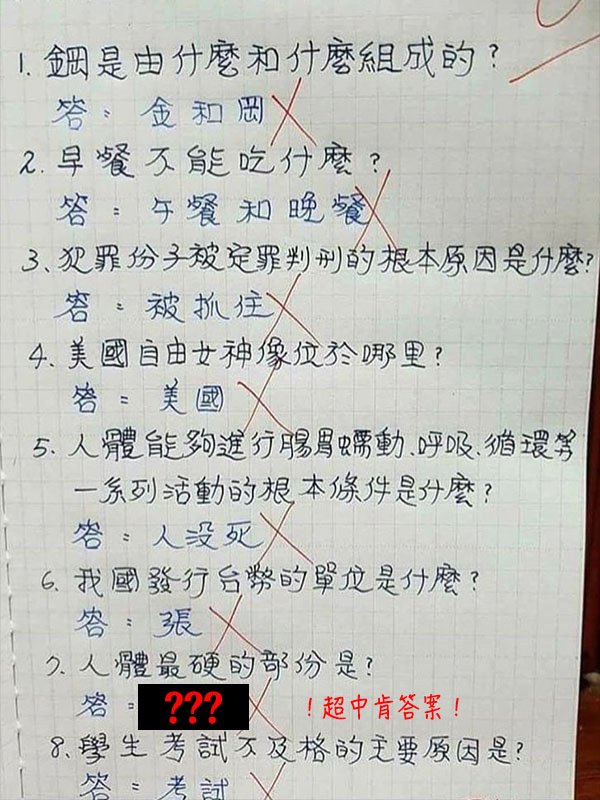 1. 鋼是由什麼和什麼組成的?
答:金和岡
2. 早餐不能吃什麼?
答:午餐和晚餐
3、犯罪份子被定罪判刑的根本原因是什麼?
答:被抓住
4、美國自由女神像位於哪里?
答:美國
5、人體能夠進行腸胃蠕動、呼吸、循環等
一系列活動的根本條件是什麼?
答:人沒死
6、我國發行台幣的單位是什麼?
答:張
7、人體最硬的部份是?
答: ??? !超中肯答案!
8、學生考試不及格的主要原因是?
答:考試